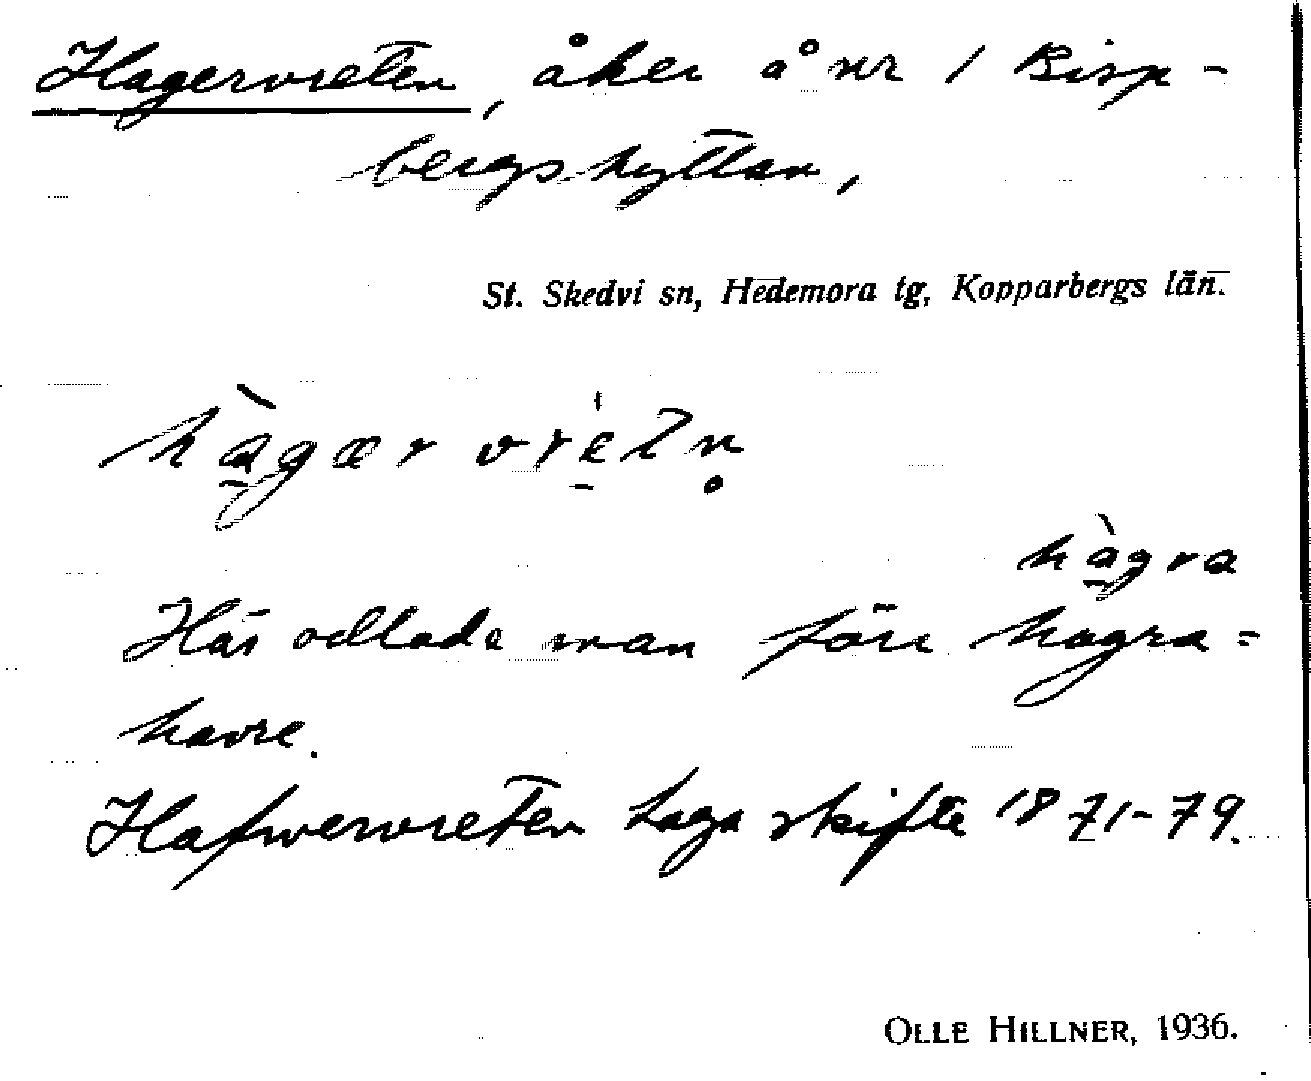 Hagervreten, åker å nr 1 Bisp-
bergshyttan,
St. Skedvi sn, Hedemora tg, Kopparbergs län.
hà̱gær vrè̱tn̥
hà̱gra
Här odlade man förr hagra =
havre.
Hafwervreten Laga skifte 1871-79.
OLLE HILLNER, 1936.